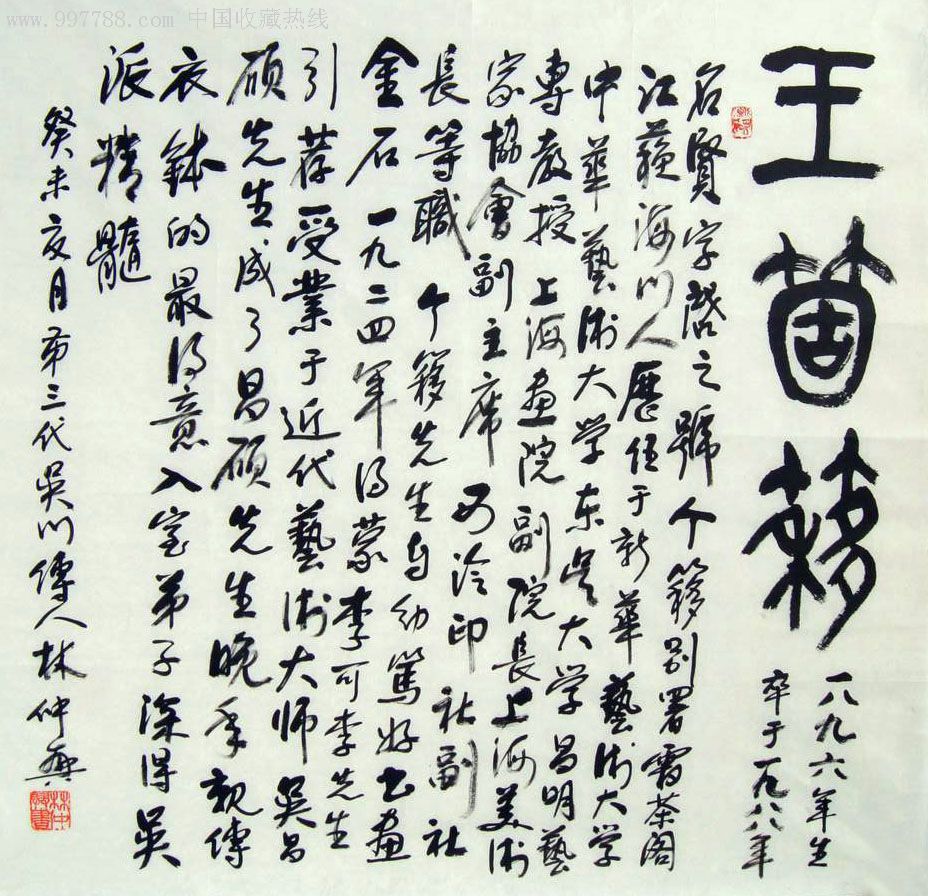 www.997788.com 中国收藏热线
王箇簃
一八九六年生
卒于一九八八年
名賢字啓之號个簃别署霜荼阁
江蘇海门人歷任于新華藝術大学
中華藝術大学东吴大学昌明藝
專教授上海画院副院長上海美術
家協會副主席西泠印社副社
長等職个簃先生自幼篤好书画
金石一九二四年得蒙李可李先生
引荐受業于近代藝術大师吴昌
碩先生成了昌碩先生晚年親傳
衣鉢的最得意入室弟子深得吴
派精髓
癸未夜月第三代吴门傳人林仲興